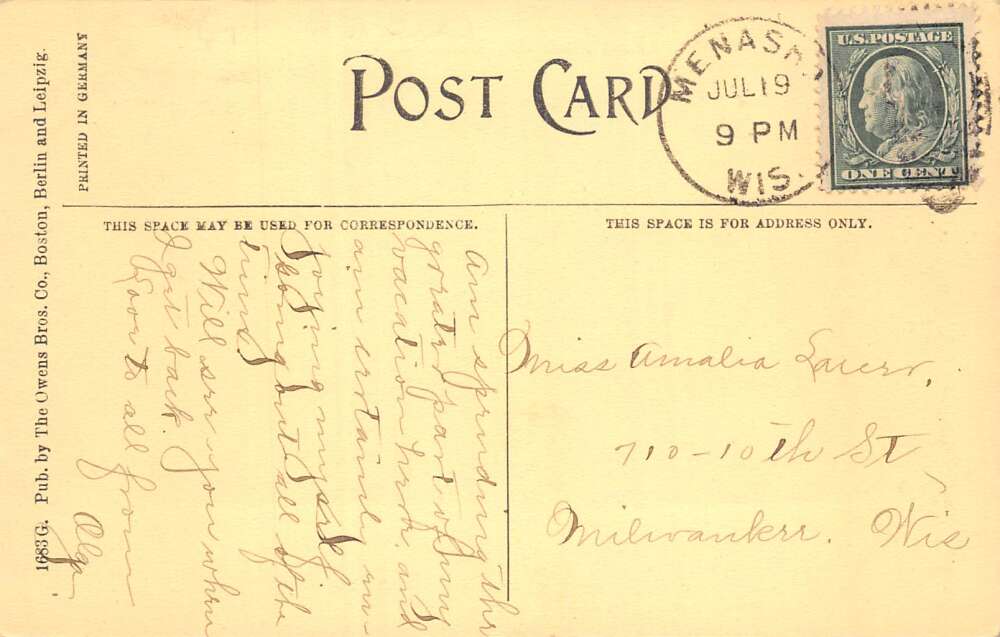 POST CARD
MENASHA
JUL 19
9 PM
WIS.
U.S. POSTAGE
ONE CENT
THIS SPACE MAY BE USED FOR CORRESPONDENCE.
THIS SPACE IS FOR ADDRESS ONLY.
PRINTED IN GERMANY
1683 G. Pub. by The Owens Bros. Co., Boston, Berlin and Leipzig.
Am spending the
greater part of my
vacation here and
am certainly en-
joying myself
being out all of the
time.
Will see you when
I get back.
Love to all from
Olga
Miss Amalia Lauer,
710-10th St
Milwaukee. Wis